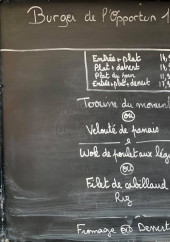 Burger de l'Opportun 1
Entrée + plat 16,
Plat + dessert 16,
Plat du jour 11,
Entrée + plat + dessert 17,
du moment
ou
Velouté de panais
Wok de poulet aux lég
ou
Filet de cabillaud
Riz
Fromage ou Dessert